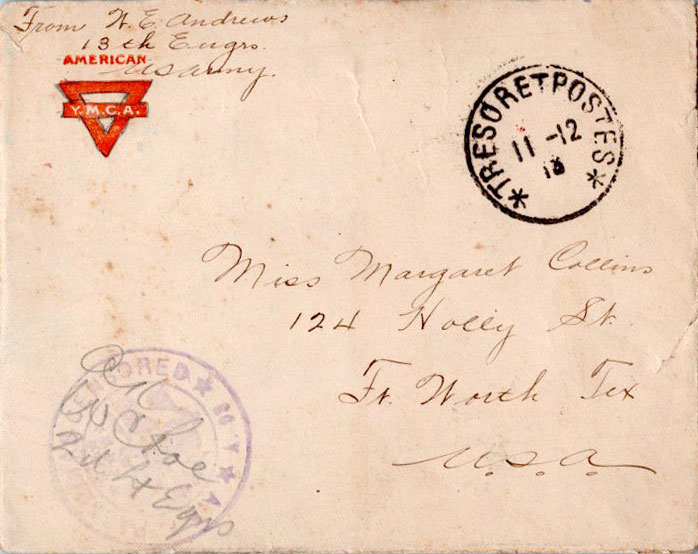 From W. E. Andrews
13th Engrs.
U S Army.
AMERICAN
Y.M.C.A.
* TRESOR ET POSTES *
11 -12
Miss Margaret Collins
124 Holly St.
Ft. Worth Tex
U.S.A.
CENSORED ★ A.
OK